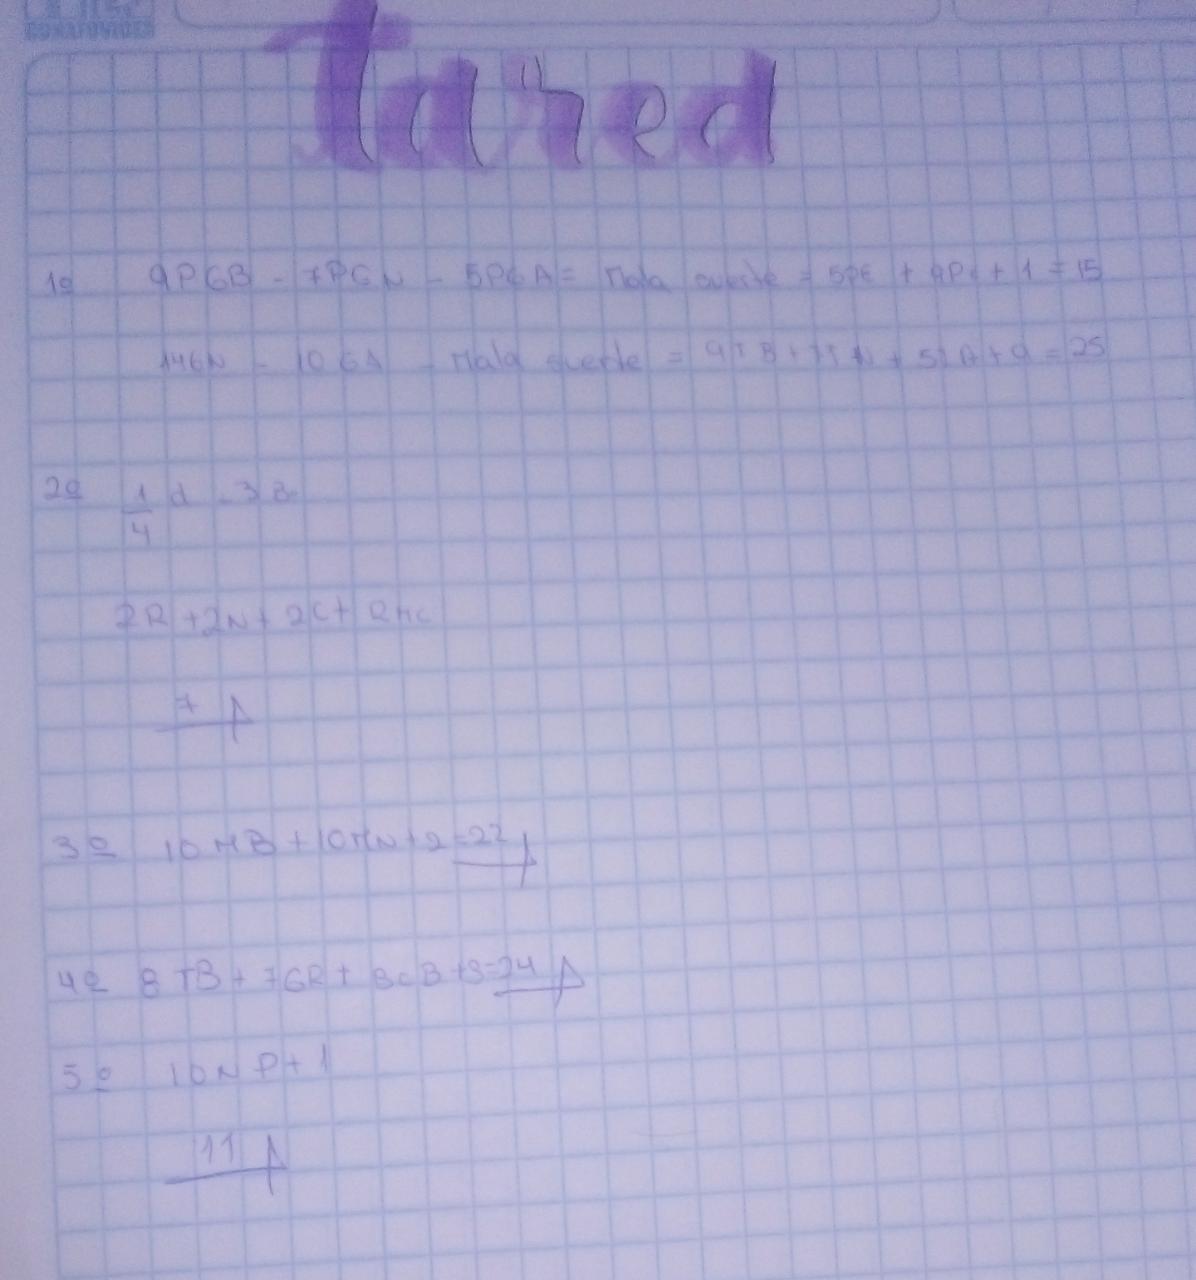 Tarea
1º 9PGB - 7PGN - 5PGA = Mala suerte = 5PG + 9PG + 1 = 15
14GN - 10GA - Mala suerte = 9TB + 7TN + 5TA + 9 = 25
2º 1/4 d - 3 B
2R + 2N + 2C +
7
3º 10MB + 10MN + 2 = 22
4º 8 TB + 7GR + 8cB + 8 = 24
5º 10N P + 1
11